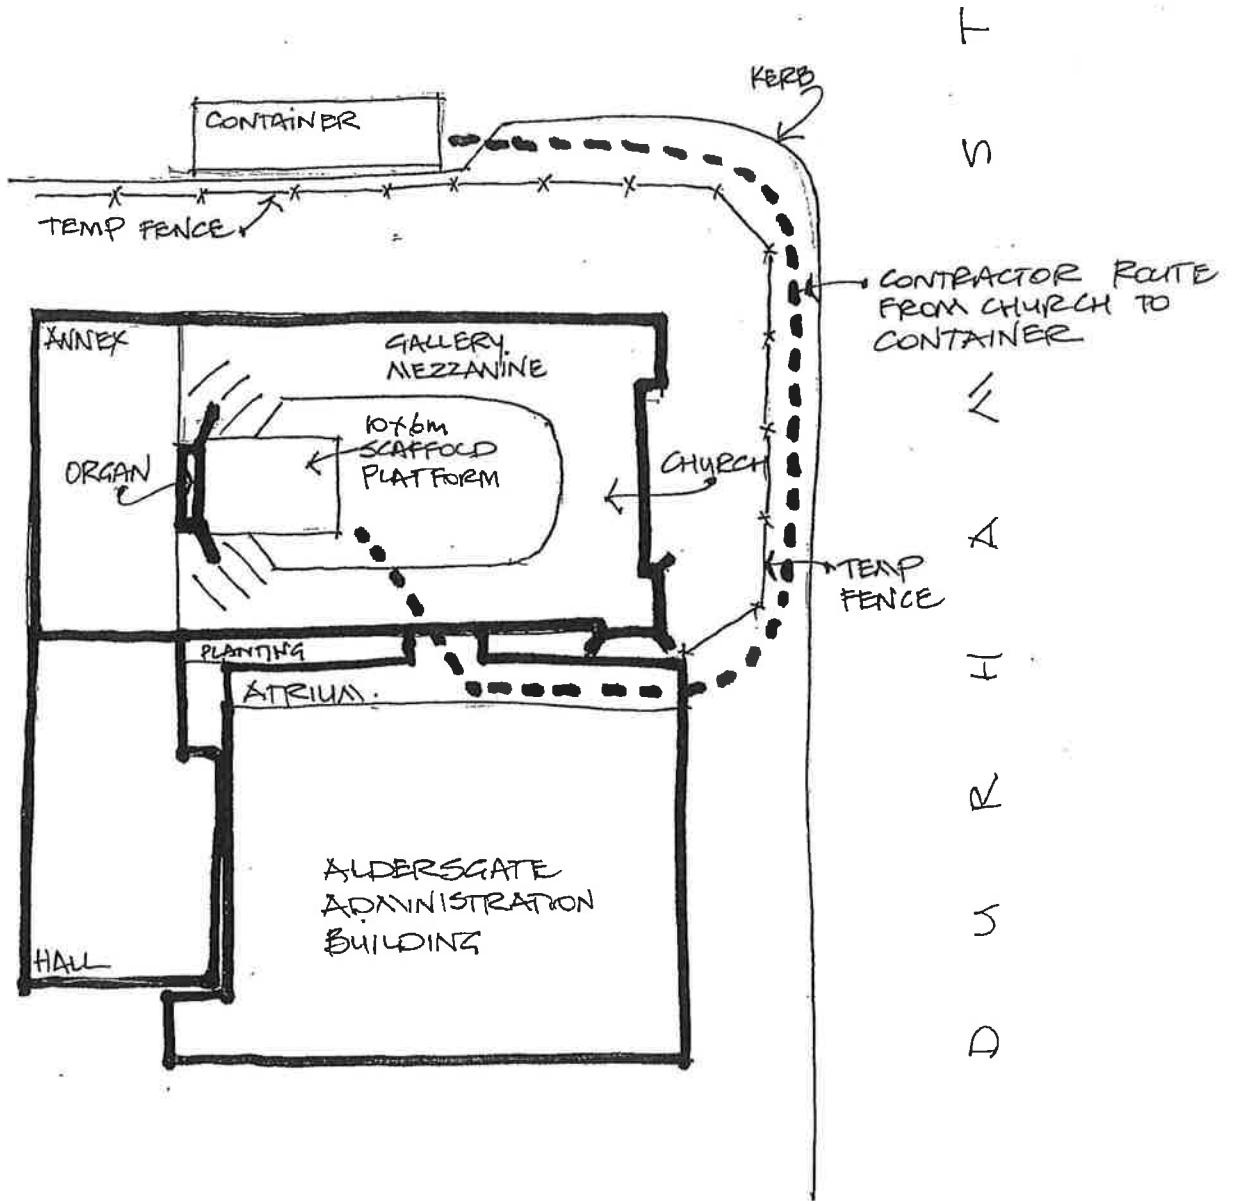 KERB
CONTAINER
TEMP FENCE
CONTRACTOR ROUTE
FROM CHURCH TO
CONTAINER
ANNEX
GALLERY.
MEZZANINE
10x6m
SCAFFOLD
PLATFORM
ORGAN
CHURCH
TEMP
FENCE
PLANTING
ATRIUM.
ALDERSGATE
ADMINISTRATION
BUILDING
HALL
DURHAM ST